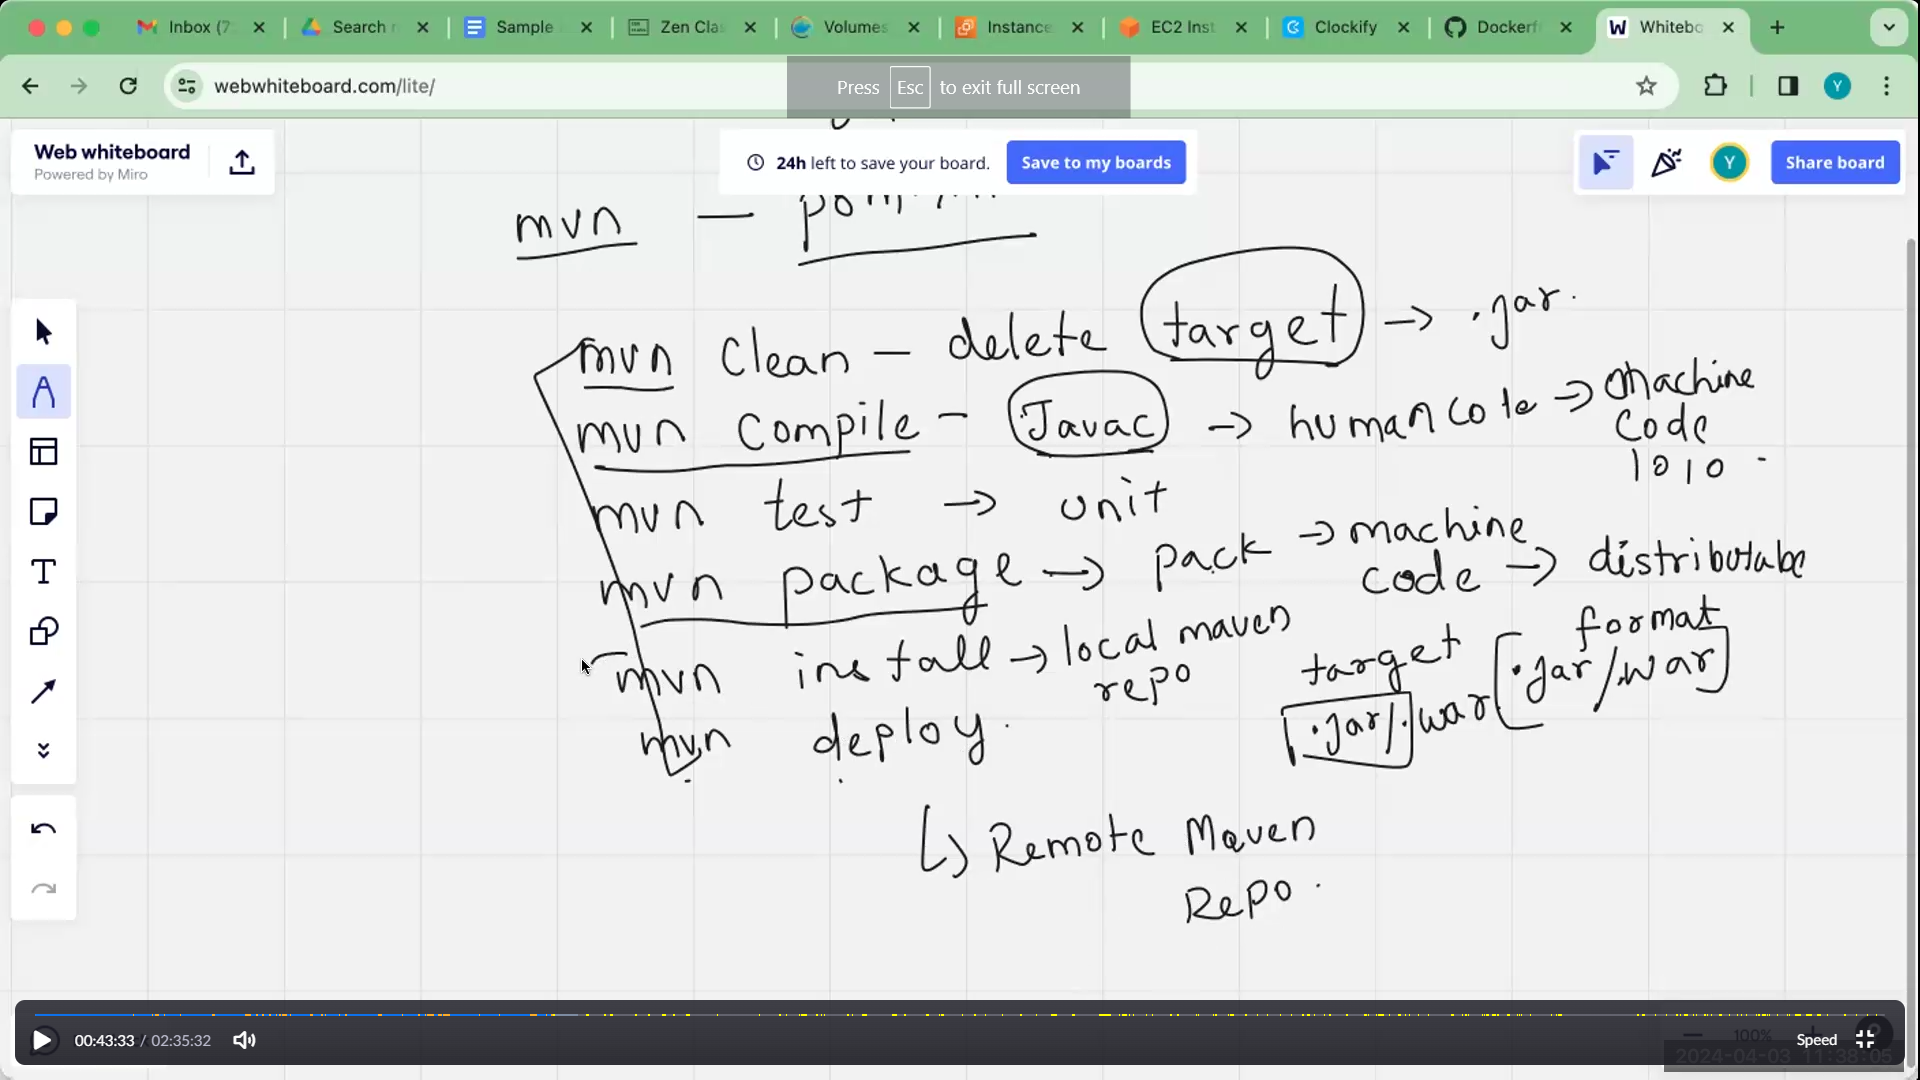 Inbox (7 Search Sample Zen Cla Volumes Instance EC2 Inst Clockify Dockerf Whitebo
webwhiteboard.com/lite/
Press Esc to exit full screen
Web whiteboard
Powered by Miro
24h left to save your board.
Save to my boards
Y
Share board
mvn —
mvn Clean — delete target → .jar.
mvn Compile - Javac → human Code → machine
Code
1010
mvn test → unit
mvn package → pack → machine
code → distributabe
format
.jar/.war
mvn install → local maven
repo
target
.jar/.war
mvn deploy.
↳ Remote Maven
Repo.
00:43:33 / 02:35:32
Speed
100%
2024-04-03 11:38:05